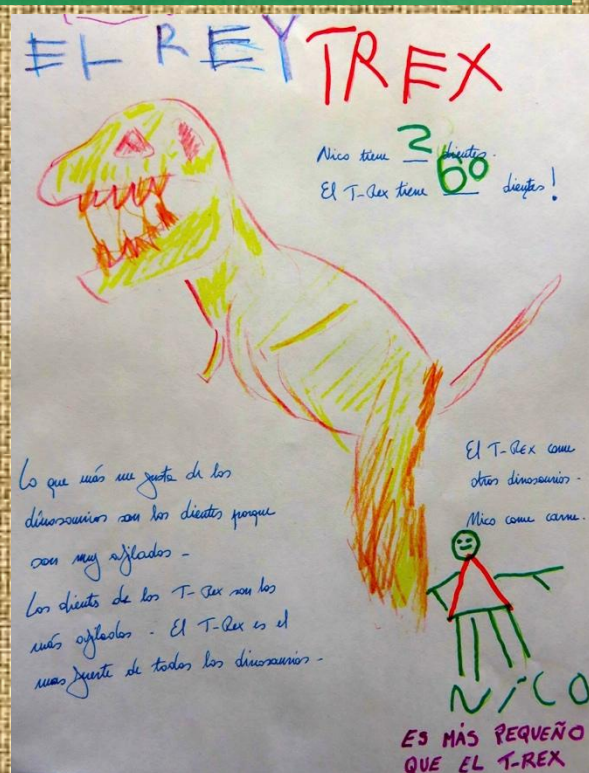 EL REY TREX
Nico tiene 2 dientes.
El T-Rex tiene 60 dientes!
Lo que más me gusta de los
dinosaurios son los dientes porque
son muy afilados -
Los dientes de los T-Rex son los
más afilados - El T-Rex es el
mas fuerte de todos los dinosaurios -
El T-Rex come
otros dinosaurios -
Nico come carne.
NiCO
ES MÁS PEQUEÑO
QUE EL T-REX